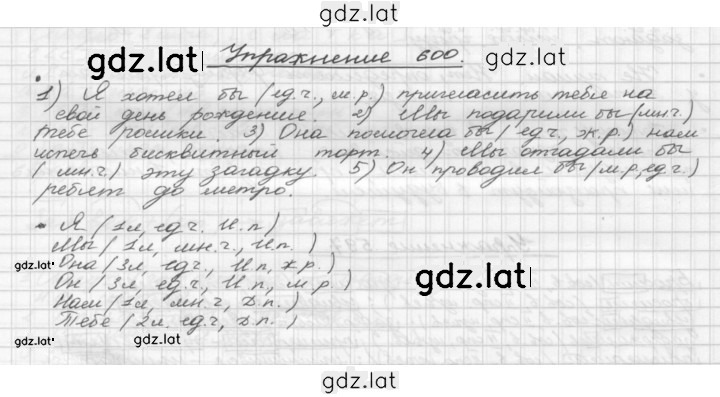 gdz.lat
gdz.lat Упражнение 600. gdz.lat
1) Я хотел бы (ед.ч., м.р.) пригласить тебя на
свой день рождение. 2) Мы подарили бы (мн.ч.)
тебе ролики. 3) Она помогла бы (ед.ч, ж.р.) нам
испечь бисквитный торт. 4) Мы отгадали бы
(мн.ч.) эту загадку. 5) Он проводил бы (м.р, ед.ч.)
ребят до метро.
Я (1л, ед.ч. И.п)
Мы (1л, мн.ч., И.п.)
gdz.lat Она (3л, ед.ч., И.п, ж.р.)
Он (3л, ед.ч., И.п, м.р.) gdz.lat
Нам (1л, мн.ч, Д.п.)
Тебе (2л, ед.ч, Д.п.)
gdz.lat gdz.lat
gdz.lat